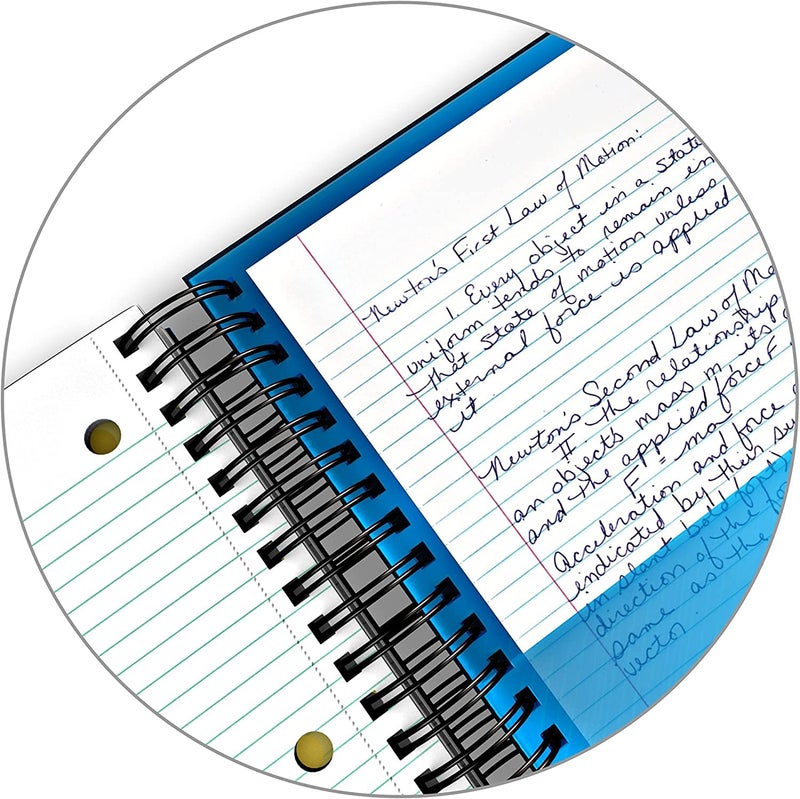 Newton's First Law of Motion:
1. Every object in a state
uniform tends to remain in
that state of motion unless
external force is applied
it.
Newton's Second Law of Mo
II. The relationship
an objects mass m, its
and the applied force F.
F = ma
Acceleration and force
indicated by their
in slant bold font
direction of the fo
same as the
vector.